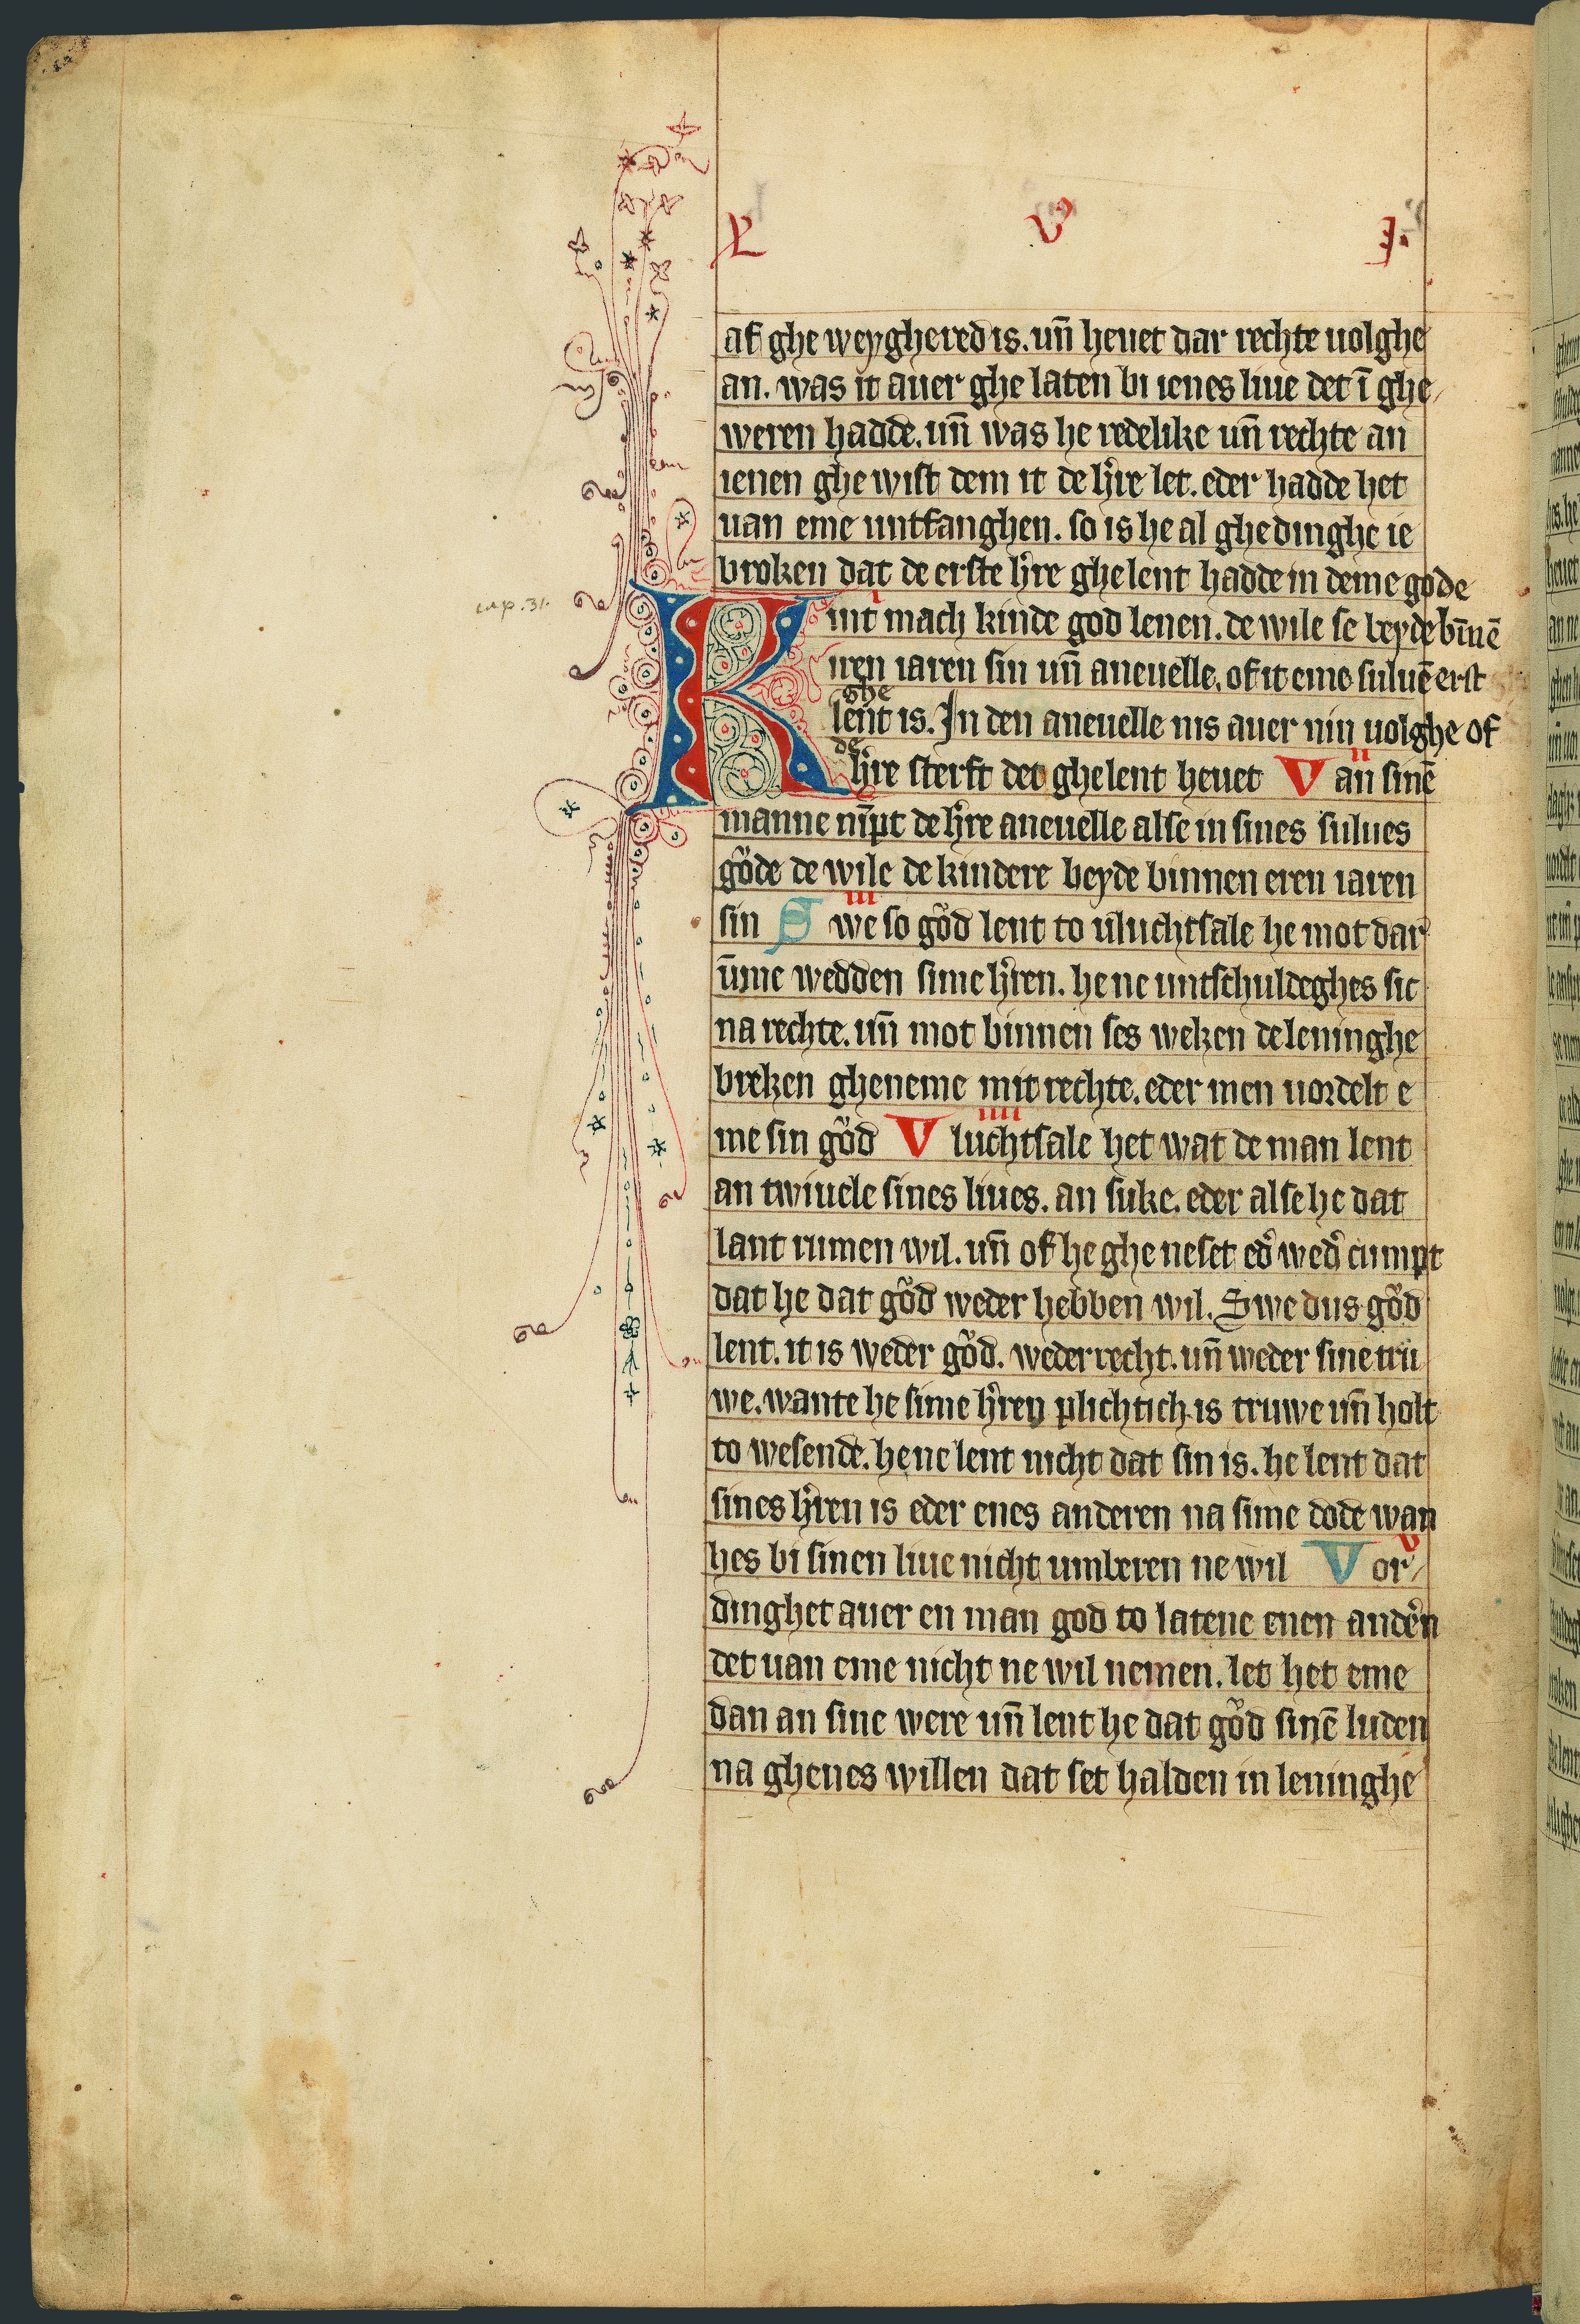 L V J.
af ghe weyghered is. un̄ heuet dar rechte uolghe
an. was it auer ghe laten bi ienes liue det ī ghe
weren hadde. un̄ was he redelike un̄ rechte an
ienen ghe wist dem it de h're let. eder hadde het
uan eme untfanghen. so is he al ghedinghe ie
broken dat de erste h're ghelent hadde in deme gode
cap. 31.
i
K int mach kinde god lenen. de wile se beyde bīnē
iren iaren sin un̄ aneuelle. of it eme suluē erst
ghe
lent is. In den aneuelle nis auer nin uolghe of
de ii
h're sterft det ghelent heuet Van sinē
manne nīpt de h're aneuelle alse in sines sulues
goͤde de wile de kindere beyde binnen eren iaren
iii
sin Swe so goͤd lent to uluchtsale he mot dar
ūme wedden sime h'ren. he ne untschuldeghes sic
na rechte. un̄ mot binnen ses weken de leninghe
breken gheneme mit rechte. eder men uordelt e
iiii
me sin goͤd Vluchtsale het wat de man lent
an twiuele sines liues. an suke. eder alse he dat
lant rumen wil. un̄ of he ghe neset ed' wed' cumpt
dat he dat goͤd weder hebben wil. Swe dus goͤd
lent. it is weder goͤd. weder recht. un̄ weder sine tru
we. wante he sime h'ren plichtich is truwe un̄ holt
to wesende. he ne lent nicht dat sin is. he lent dat
sines h'ren is eder enes anderen na sime dode wan
v
hes bi sinen liue nicht umberen ne wil Vor
dinghet auer en man god to latene enen and'en
det uan eme nicht ne wil nemen. let het eme
dan an sine were un̄ lent he dat goͤd sinē luden
na ghenes willen dat set halden in leninghe